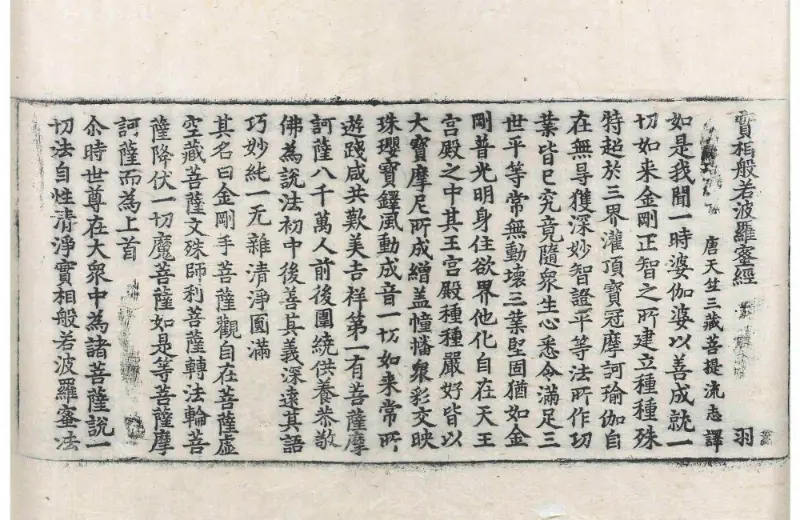 實相般若波羅蜜經 羽
唐天竺三藏菩提流志譯
如是我聞一時婆伽婆以善成就一
切如来金剛正智之所建立種種殊
特超於三界灌頂寶冠摩訶瑜伽自
在無㝵獲深妙智證平等法所作功
業皆已究竟隨衆生心悉令滿足三
世平等常無動壞三業堅固猶如金
剛普光明身住欲界他化自在天王
宮殿之中其王宮殿種種嚴好皆以
大寶摩尼所成繒盖幢幡衆彩交映
珠瓔寶鐸風動成音一切如来常所
遊踐咸共歎美吉祥第一有菩薩摩
訶薩八千萬人前後圍繞供養恭敬
佛為說法初中後善其義深遠其語
巧妙純一无雜清淨圓滿
其名曰金剛手菩薩觀自在菩薩虛
空藏菩薩文殊師利菩薩轉法輪菩
薩降伏一切魔菩薩如是等菩薩摩
訶薩而為上首
尒時世尊在大衆中為諸菩薩說一
切法自性清淨實相般若波羅蜜法